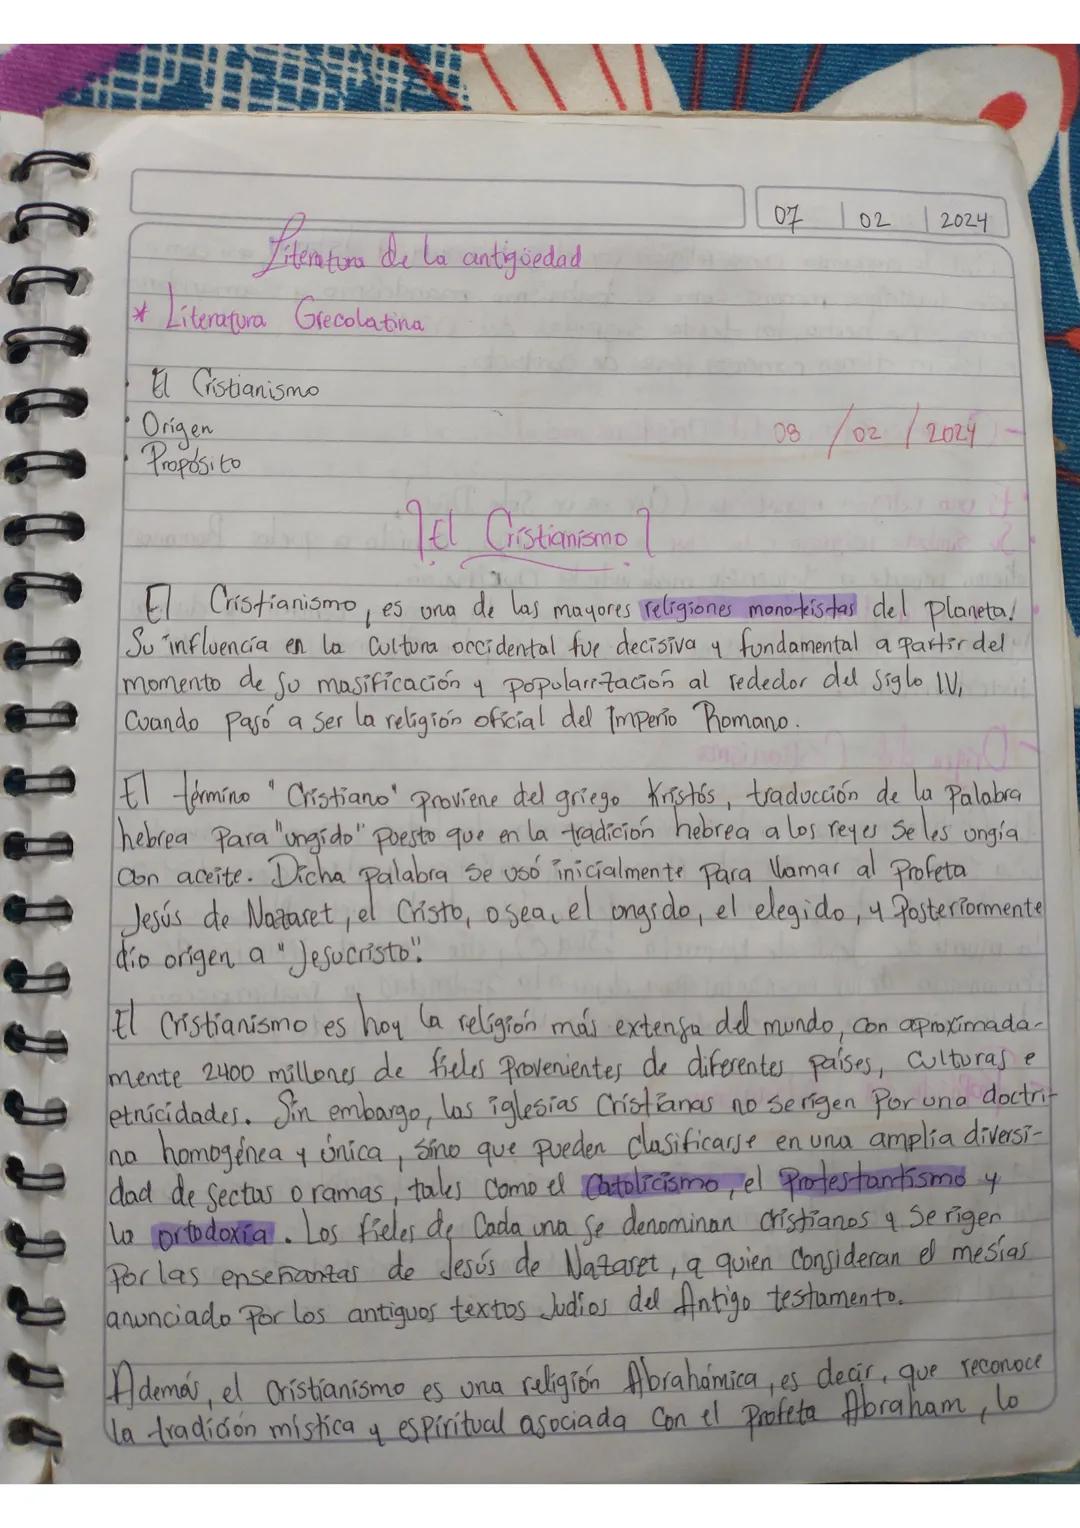 07 | 02 | 2024
Literatura de la antigüedad
* Literatura Grecolatina
· El Cristianismo
· Origen
08 / 02 / 2024
· Propósito
¿El Cristianismo?
El Cristianismo, es una de las mayores religiones monoteistas del planeta.
Su influencia en la cultura occidental fue decisiva y fundamental a partir del
momento de su masificación y popularización al rededor del siglo IV,
Cuando pasó a ser la religión oficial del Imperio Romano.
El término "Cristiano" proviene del griego Kristós, traducción de la Palabra
hebrea para "ungido" puesto que en la tradición hebrea a los reyes se les ungía
con aceite. Dicha palabra se usó inicialmente para llamar al Profeta
Jesús de Nazaret, el Cristo, o sea, el ungido, el elegido, y Posteriormente
dio origen a "Jesucristo".
El Cristianismo es hoy la religión más extensa del mundo, con aproximada-
mente 2400 millones de fieles Provenientes de diferentes países, culturas e
etnicidades. Sin embargo, las iglesias Cristianas no se rigen Por una doctri-
na homogénea y única, sino que pueden clasificarse en una amplia diversi-
dad de sectas o ramas, tales como el Catolicismo, el Protestantismo y
la ortodoxia. Los fieles de cada una se denominan cristianos y se rigen
Por las enseñanzas de Jesús de Nazaret, a quien Consideran el mesías
anunciado Por los antiguos textos Judios del Antigo testamento.
Además, el Cristianismo es una religión Abrahámica, es decir, que reconoce
la tradición mística y espiritual asociada con el Profeta Abraham, lo